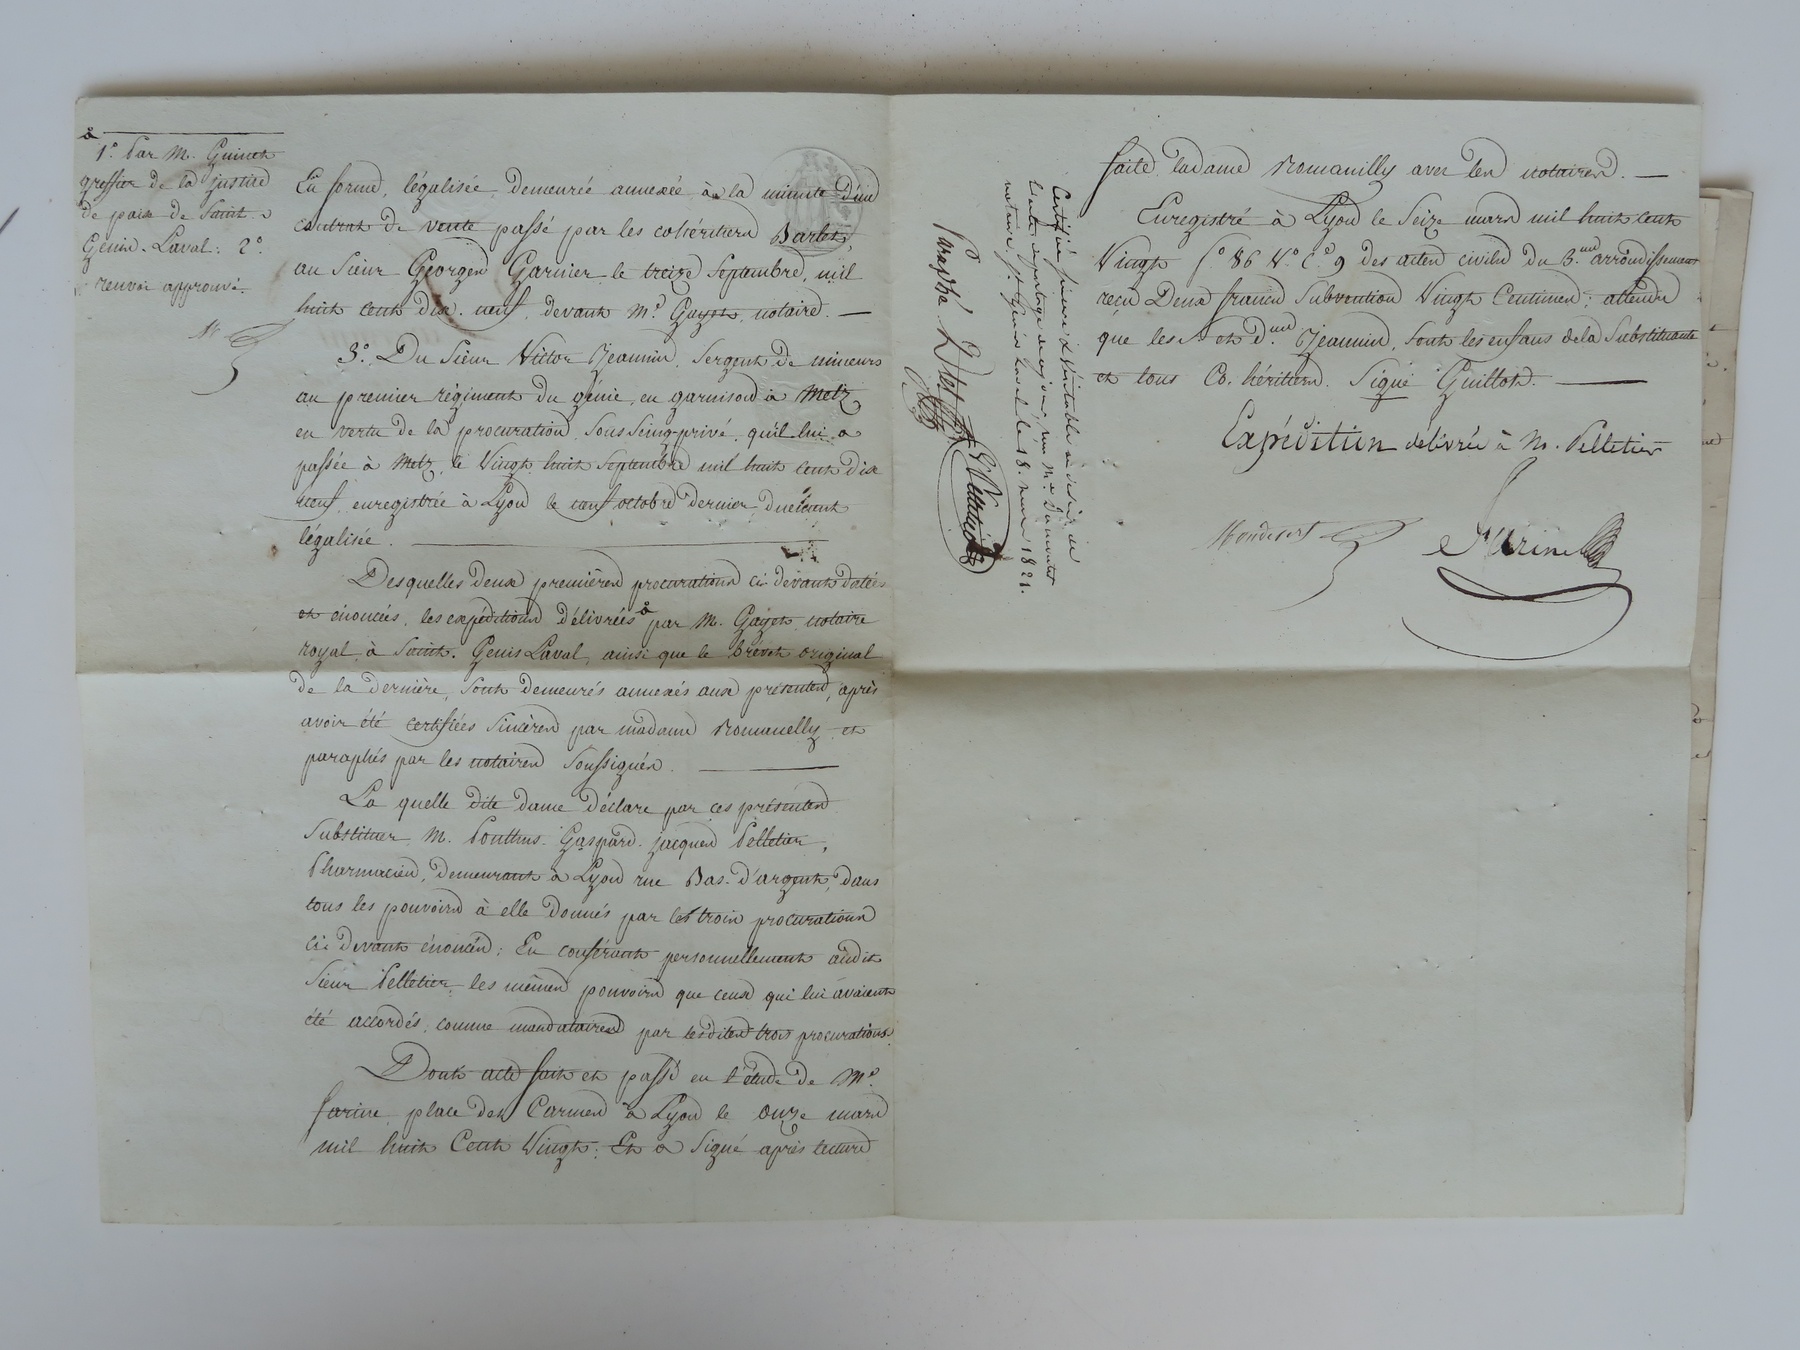 1.° Par M. Guinet
greffier de la justice
de paix de Saint-
Genis-Laval: 2.°
renvoi approuvé.
En forme, légalisée, demeurée annexée à la minute d'un
contrat de vente passé par les cohéritiers Barlet,
au Sieur Georges Garnier le treize Septembre, mil
huit cent dix-neuf, devant M.e Gayet, notaire. —
3.° Du Sieur Victor Jeannin, Sergent de mineurs
au premier régiment du génie, en garnison à Metz,
en vertu de la procuration Sous Seing-privé, qu'il lui a
passée à Metz, le Vingt huit Septembre mil huit cent dix
neuf, enregistrée à Lyon le neuf octobre dernier, duement
légalisée. —
Desquelles deux premières procurations ci-devant datées
et énoncées, les expéditions délivrées par M. Gayet, notaire
royal à Saint-Genis Laval, ainsi que le brévet original
de la dernière, sont demeurés annexés aux présentes, après
avoir été certifiées Sincères par madame Romanelly et
paraphés par les notaires Soussignés. —
La quelle dite dame déclare par ces présentes
Substituer M. Gaspard-jacques Pelletier,
Pharmacien, demeurant à Lyon rue Bas-d'argent, dans
tous les pouvoirs à elle donnés par les trois procurations
ci-devant énoncées: En conférant personnellement audit
Sieur Pelletier les mêmes pouvoirs que ceux qui lui avaient
été accordés, comme mandataires par lesdites trois procurations.
Dont acte fait et passé en l'étude de M.e
farine, place des Carmes à Lyon le onze mars
mil huit Cent Vingt: Et a Signé après lecture
faite, ladame Romanilly avec les notaires. —
Enregistré à Lyon le Seize mars mil huit cent
Vingt f.° 86 V.° C.e 9 des actes civils du 3.me arrondissement
reçu Deux francs Subvention Vingt Centimes: attendu
que les S. et d.me Jeannin, sont les enfans de la Substituante
et tous Co-héritiers. Signé Guillot. —
Expédition délivrée à M. Pelletier
Farine
Certifiée sincère & Véritable au désir de
l'acte de partage de ce jour, reçu M.e
notaire à St Genis Laval le 18. mars 1821.
Paraphé
Pelletier